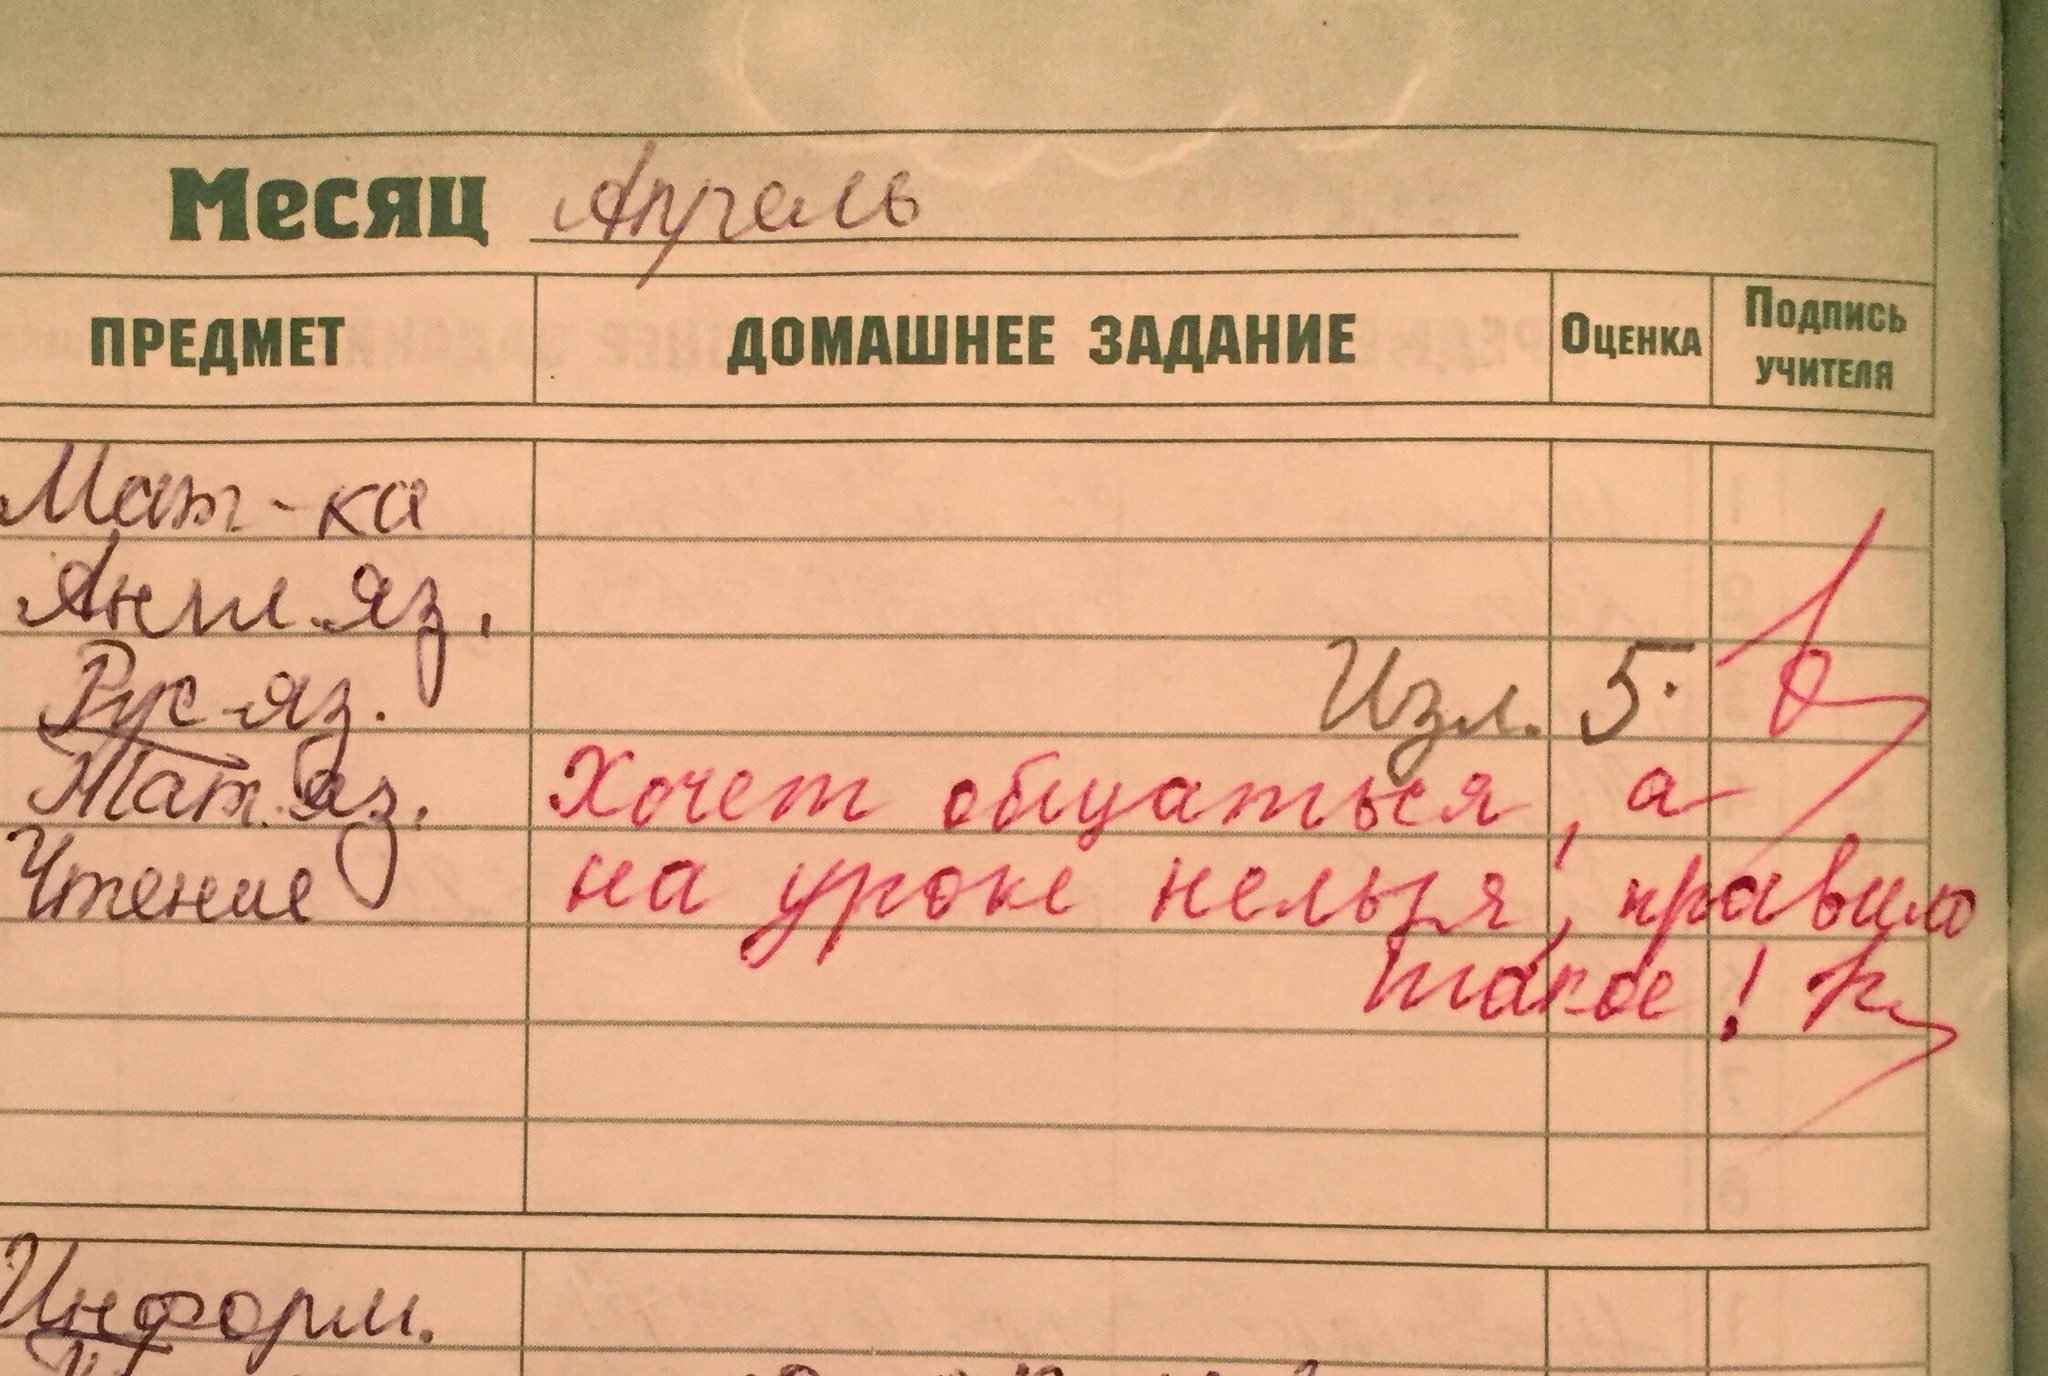 Месяц Апрель
ПРЕДМЕТ ДОМАШНЕЕ ЗАДАНИЕ Оценка Подпись учителя
Мат-ка
Англ. яз.
Рус-яз. Изл. 5.
Тат. яз. Хочет общаться, а
Чтение на уроке нельзя, правило
такое!
Информ.